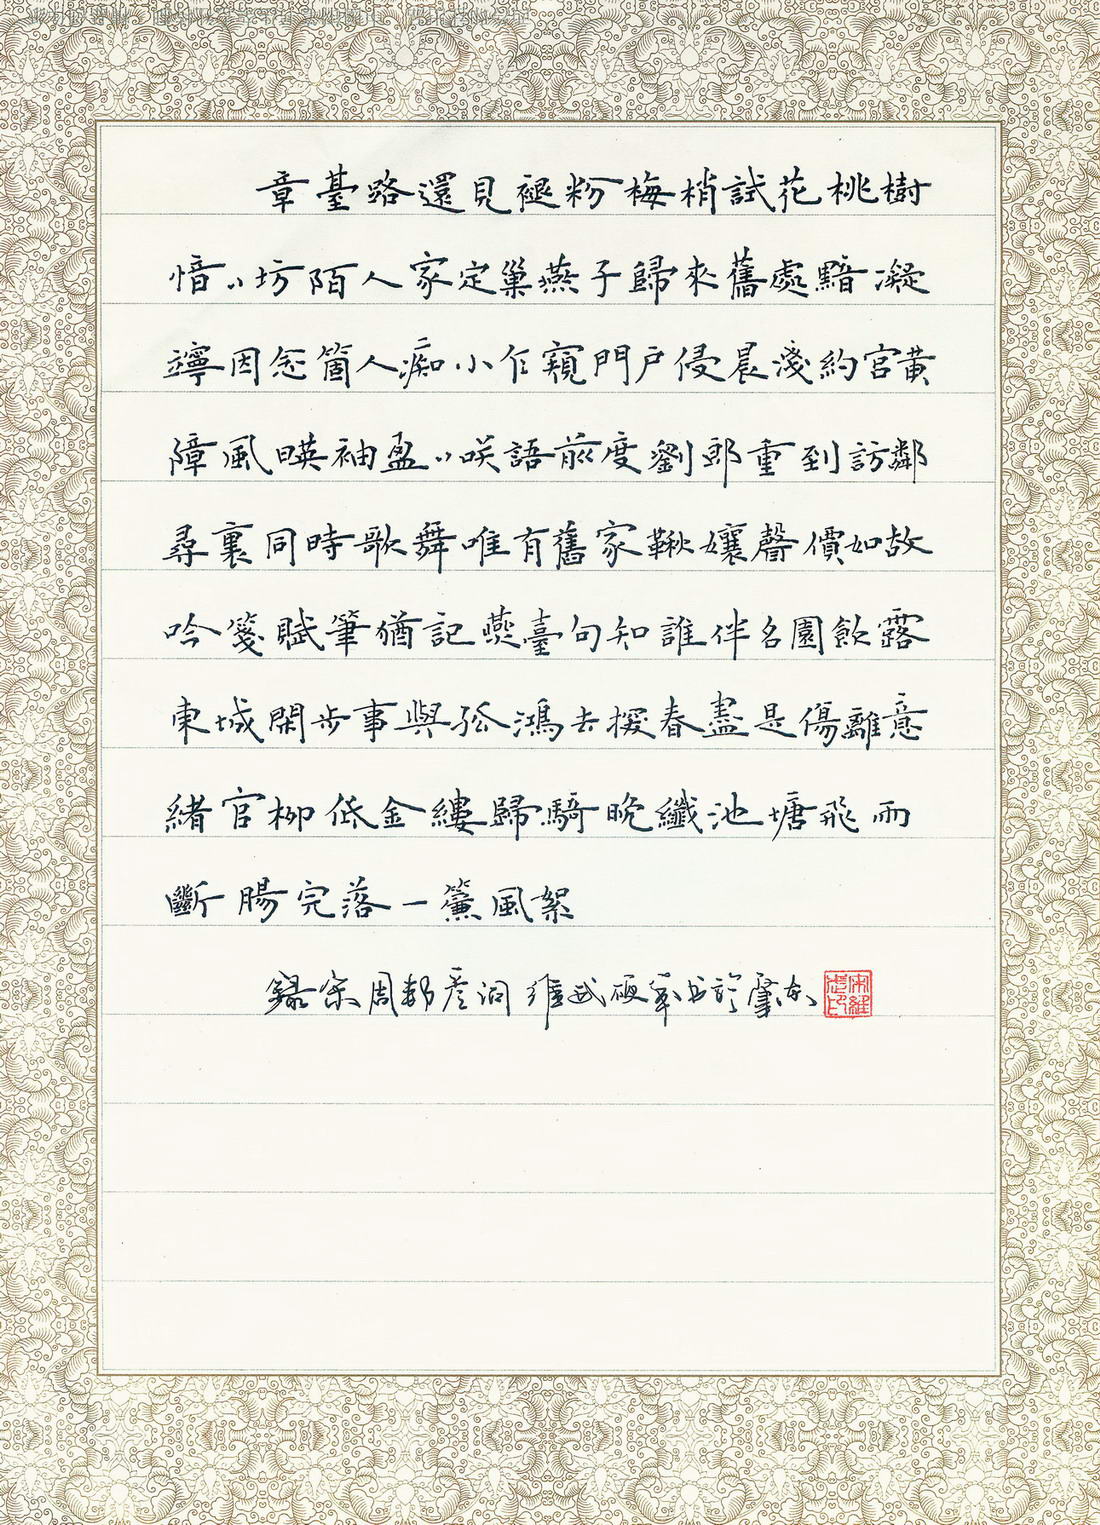 章臺路還見褪粉梅梢試花桃樹
愔〻坊陌人家定巢燕子歸來舊處黯凝
竚因念箇人痴小乍窺門戶侵晨淺約宮黃
障風暎袖盈〻咲語前度劉郎重到訪鄰
尋裏同時歌舞唯有舊家鞦孃聲價如故
吟箋賦筆猶記燕臺句知誰伴名園飲露
東城閑步事與孤鴻去探春盡是傷離意
緒官柳低金縷歸騎晚纖池塘飛雨
斷腸完落一簾風絮
錄宋周邦彥詞 維武硬筆書於肇東